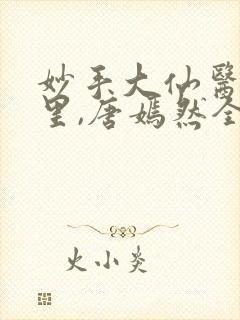 妙手大仙醫
里,唐嫣然全
火小炎